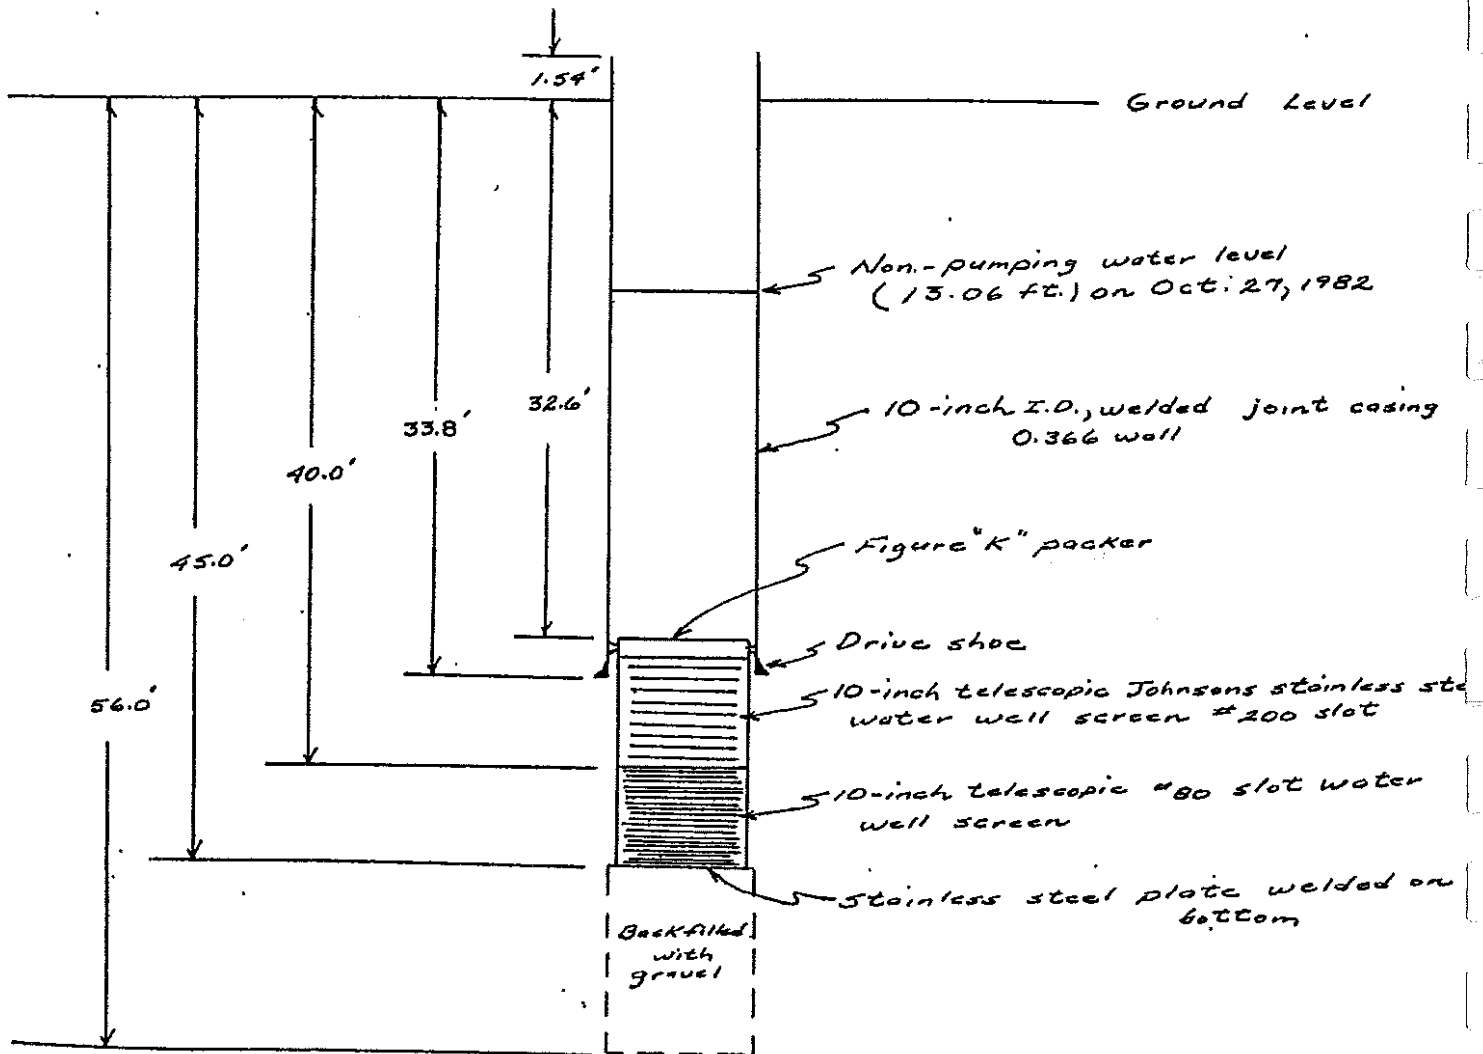 1.54'
Ground Level
Non-pumping water level
(13.06 ft.) on Oct. 27, 1982
32.6'
10-inch I.D., welded joint casing
0.366 wall
33.8'
40.0'
45.0'
Figure "K" packer
Drive shoe
10-inch telescopic Johnsons stainless ste
water well screen #200 slot
56.0'
10-inch telescopic #80 slot water
well screen
Stainless steel plate welded on
bottom
Backfilled
with
gravel